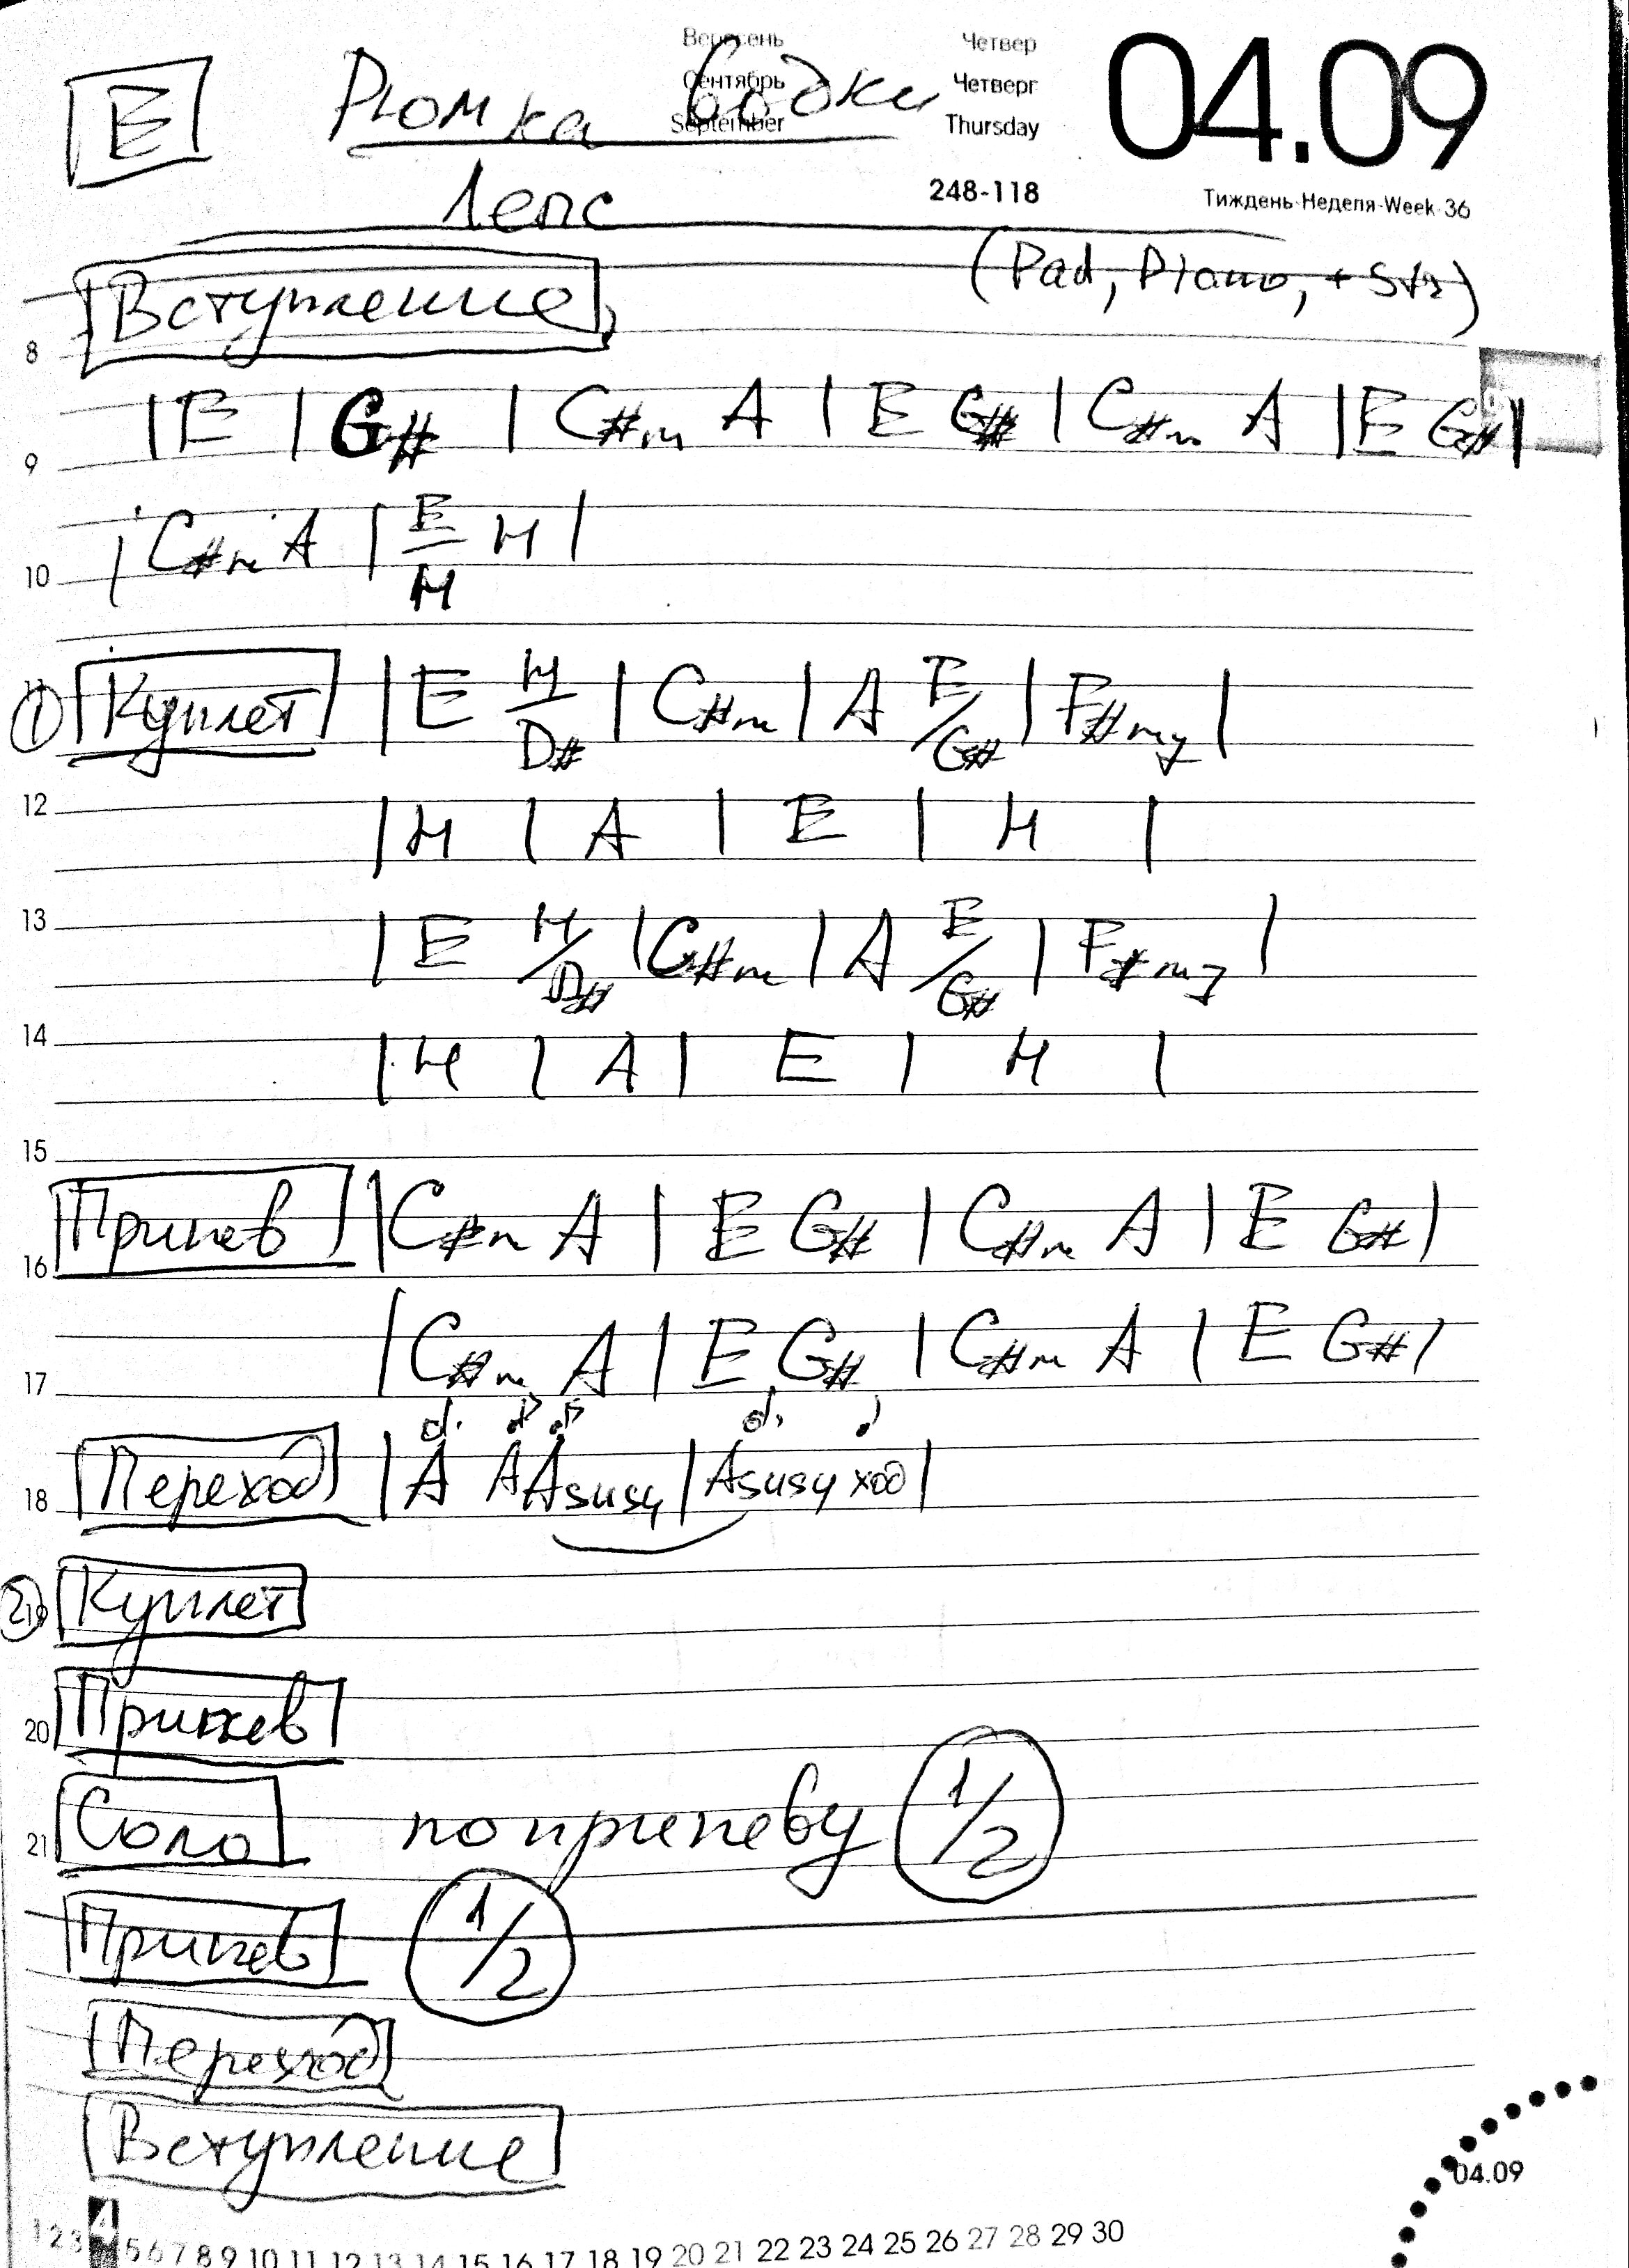 Вересень Четвер
Сентябрь Четверг
September Thursday
04.09
248-118
Тиждень-Неделя-Week 36
E Рюмка водки
Лепс
Вступление (Pad, Piano, + Str)
8
|E | G# | C#m A | E G# | C#m A | E G# |
9
| C#m A | E/H H |
10
① Куплет | E H/D# | C#m | A E/G# | F#m7 |
12
| H | A | E | H |
13
| E H/D# | C#m | A E/G# | F#m7 |
14
| H | A | E | H |
15
Припев | C#m A | E G# | C#m A | E G# |
16
| C#m A | E G# | C#m A | E G# |
17
Переход | A A Asus4 | Asus4 ход |
18
② Куплет
Припев
20
Соло по припеву 1/2
21
Припев 1/2
Переход
Вступление
04.09
1 2 3 4 5 6 7 8 9 10 11 12 13 14 15 16 17 18 19 20 21 22 23 24 25 26 27 28 29 30